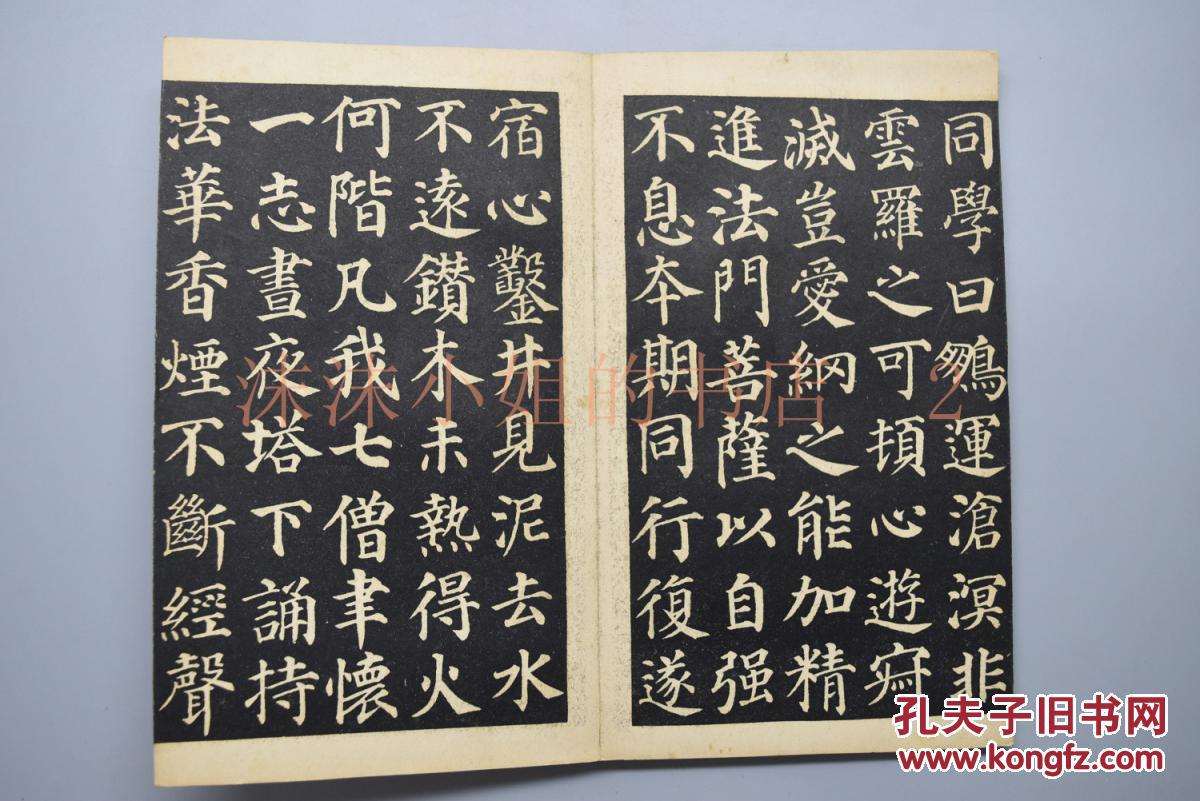 同學曰鵬運滄溟非
雲羅之可頓心遊寂
滅豈愛網之能加精
進法門菩薩以自强
不息本期同行復遂
宿心鑿井見泥去水
不遠鑽木未熱得火
何階凡我七僧聿懷
一志晝夜塔下誦持
法華香煙不斷經聲
沫沫小姐的书店 2
孔夫子旧书网
www.kongfz.com